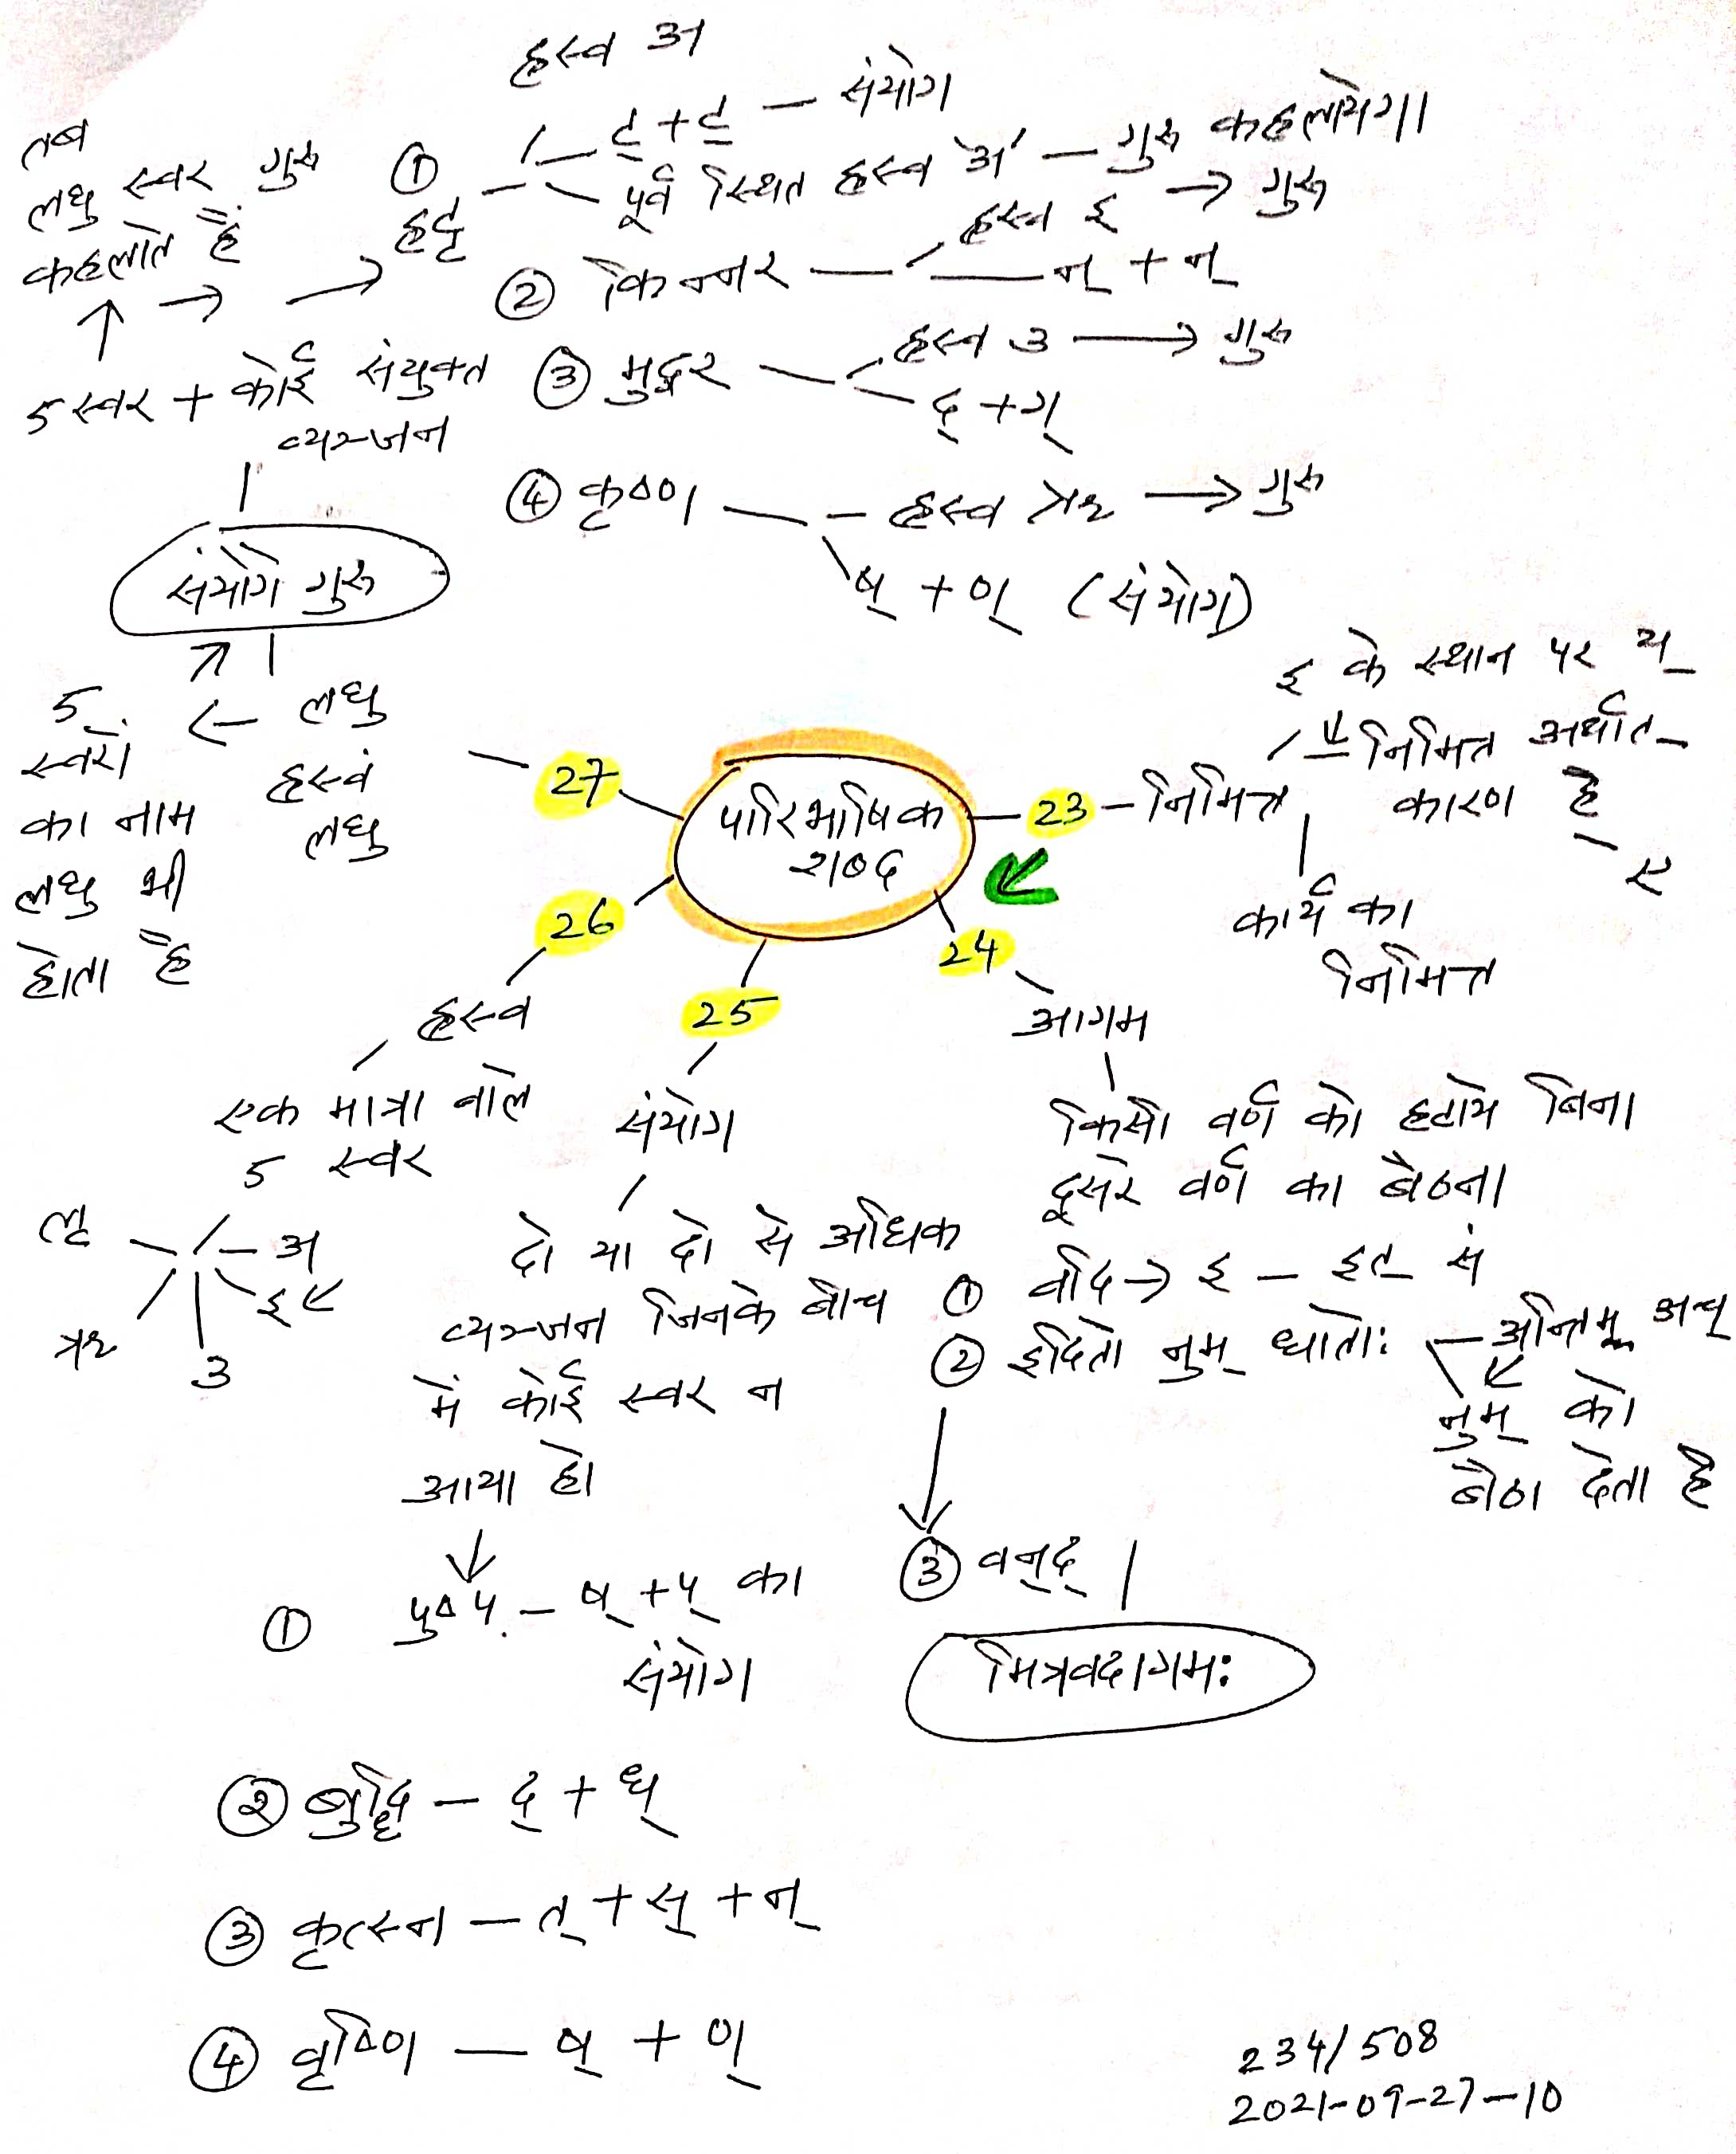 ह्रस्व अ
① हट्ट — ट् + ट् — संयोग
पूर्व स्थित ह्रस्व 'अ' — गुरु कहलायेगा
② किन्नर — ह्रस्व इ → गुरु
न् + न्
③ मुद्गर — ह्रस्व उ → गुरु
द् + ग्
④ कृष्ण — ह्रस्व ऋ → गुरु
ष् + ण् (संयोग)
तब
लघु स्वर गुरु
कहलाते हैं
↑ → →
5 स्वर + कोई संयुक्त
व्यञ्जन
संयोगे गुरु
5 ← लघु
स्वरों
का नाम
लघु भी
होता है
ह्रस्वं
लघु
पारिभाषिक
शब्द
23 – निमित्त
इ के स्थान पर य्
निमित्त अर्थात्
कारण है
– ए
कार्य का
निमित्त
24
आगम
किसी वर्ण को हटाये बिना
दूसरे वर्ण का बैठना
① वदि → इ – इत् सं
② इदितो नुम् धातोः – अन्तिम अच्
नुम् को
बैठा देता है
③ वन्द्
मित्रवदागमः
25
संयोग
दो या दो से अधिक
व्यञ्जन जिनके बीच
में कोई स्वर न
आया हो
① पुष्प – ष् + प् का
संयोग
② बुद्धि – द् + ध्
③ कृत्स्न – त् + स् + न्
④ वृष्णि — ष् + ण्
26
ह्रस्व
एक मात्रा वाले
5 स्वर
अ
इ
उ
ऋ
लृ
27
234/508
2021-09-27-10